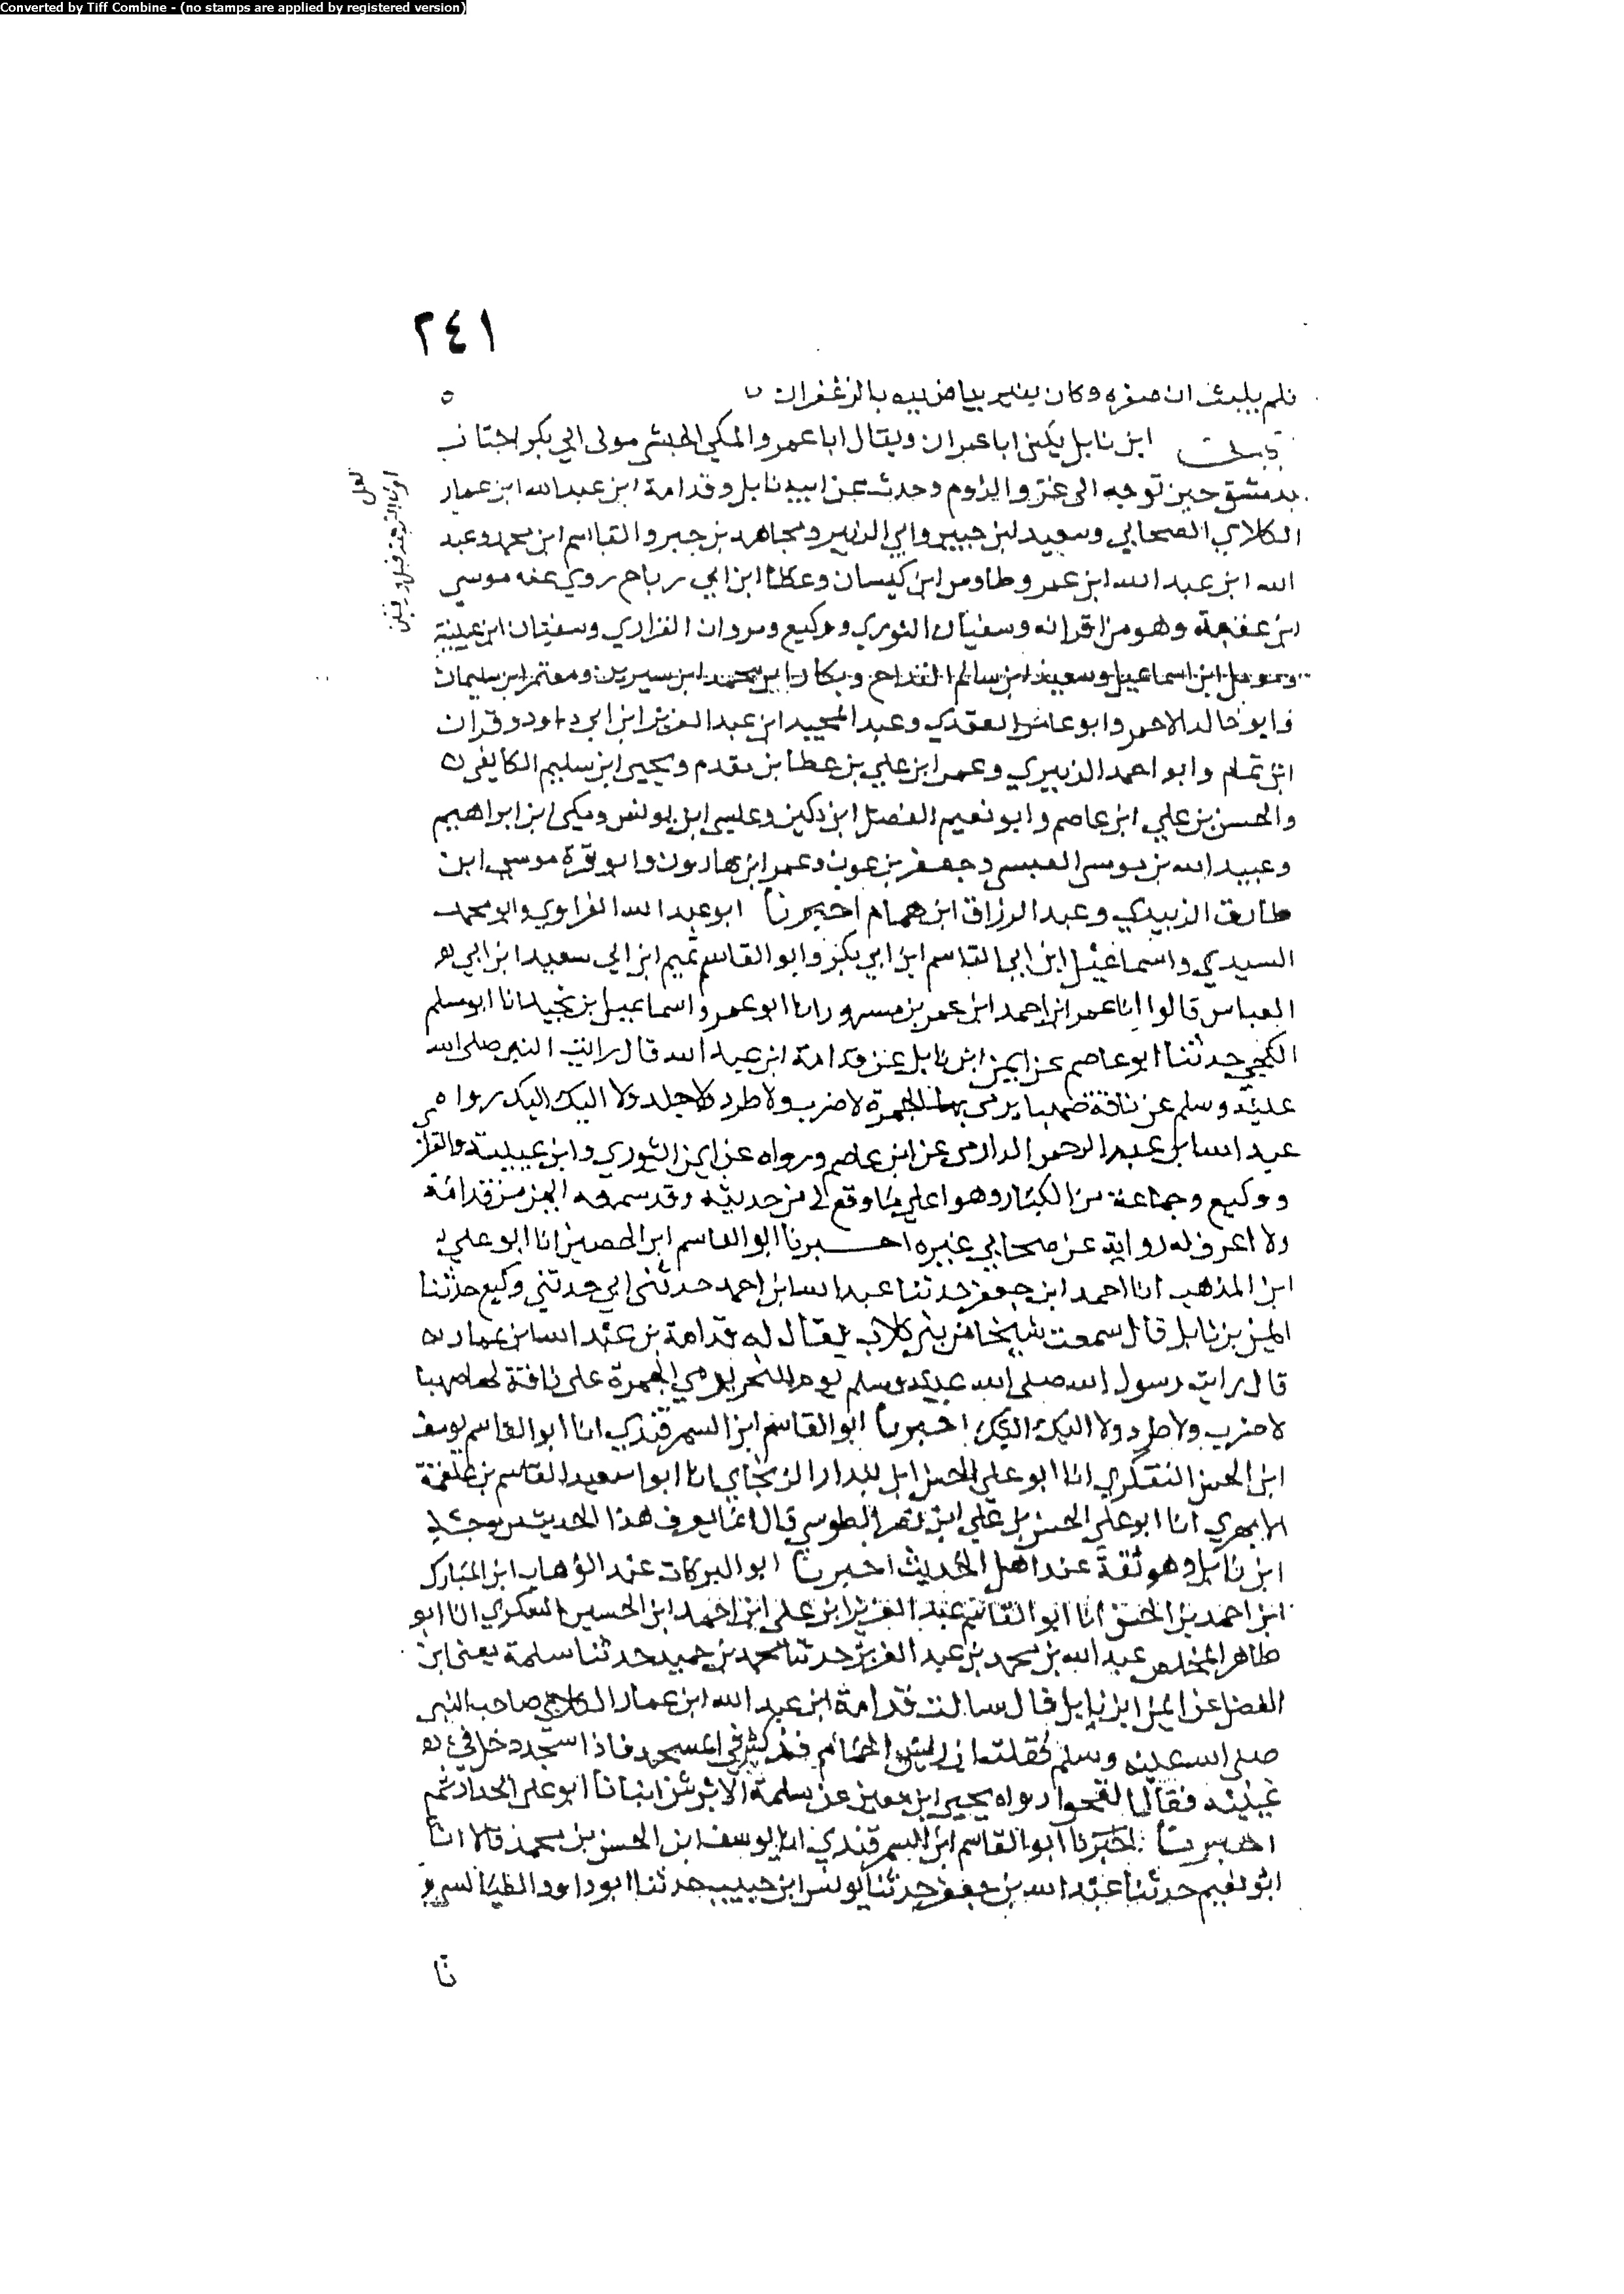 Converted by Tiff Combine - (no stamps are applied by registered version)
٢٤١
فلم يلبث ان صفره وكان يغير بياضه بالزعفران
ابن نابل يكنى ابا عمران ويقال ابا عمرو المكي الحبشي مولى ابي بكر اجتاز
بدمشق حين توجه الى غزو الروم وحدث عن ابيه نابل وقدامة ابن عبد الله ابن عمار
الكلابي الصحابي وسعيد ابن جبير وابي الزبير ومجاهد بن جبر والقاسم ابن محمد وعبد
الله ابن عبد الله ابن عمر وطاوس ابن كيسان وعطا ابن ابي رباح روي عنه موسى
ابن عقبة وهو من اقرانه وسفيان الثوري ووكيع ومروان الفزاري وسفيان ابن عيينة
ومؤمل ابن اسماعيل وسعيد ابن سالم القداح وبكار ابن محمد ابن سيرين ومعتمر ابن سليمان
وابو خالد الاحمر وابو عامر العقدي وعبد المجيد ابن عبد العزيز ابن ابي داود وقران
ابن تمام وابو احمد الزبيري وعمر ابن علي بن عطا بن مقدم ويحيى ابن سليم الطايفي
والحسن بن علي ابن عاصم وابو نعيم الفضل ابن دكين وعيسى ابن يونس ومكي ابن ابراهيم
وعبيد الله بن موسى العبسي وجعفر بن عون وعمر ابن هارون وابو قرة موسى ابن
طارق الزبيدي وعبد الرزاق ابن همام اخبرنا ابو عبد الله الفراوي وابو محمد
السيدي واسماعيل ابن ابي القاسم ابن ابي بكر وابو القاسم تميم ابن ابي سعيد ابن ابي
العباس قالوا انا عمر ابن احمد ابن عمر بن مسرور انا ابو عمرو اسماعيل بن نجيد انا ابو مسلم
الكجي حدثنا ابو عاصم عن ايمن ابن نابل عن قدامة ابن عبد الله قال رايت النبي صلى الله
عليه وسلم على ناقة صهبا يرمي بها الجمرة لا ضرب ولا طرد ولا جلد ولا اليك اليك رواه
عبد الله ابن عبد الرحمن الدارمي عن ابي عاصم ورواه عن ايمن الثوري وابن عيينة
ووكيع وجماعة من الكبار وهو اعلى ما وقع لي من حديثه وقد سمعه ايمن من قدامة
ولا اعرف له رواية عن صحابي غيره اخبرنا ابو القاسم ابن الحصين انا ابو علي
ابن المذهب انا احمد ابن جعفر حدثنا عبد الله ابن احمد حدثني ابي حدثني وكيع حدثنا
ايمن بن نابل قال سمعت شيخا من بني كلاب يقال له قدامة بن عبد الله ابن عمار
قال رايت رسول الله صلى الله عليه وسلم يوم النحر يرمي الجمرة على ناقة له صهبا
لا ضرب ولا طرد ولا اليك اليك اخبرنا ابو القاسم ابن السمرقندي انا ابو القاسم يوسف
ابن الحسن التفكري انا ابو علي الحسن ابن بندار الزنجاني انا ابو سعيد القاسم بن علقمة
الابهري انا ابو علي الحسن بن علي ابن نصر الطوسي قال انما يعرف هذا الحديث من
ابن نابل وهو ثقة عند اهل الحديث اخبرنا ابو البركات عبد الوهاب ابن المبارك
ابن احمد بن الحسن انا ابو القاسم عبد العزيز ابن علي ابن احمد ابن الحسين السكري انا ابو
طاهر المخلص عبد الله بن محمد بن عبد العزيز حدثنا محمد بن حميد حدثنا سلمة يعني ابن
الفضل عن ايمن ابن نابل قال سالت قدامة ابن عبد الله ابن عمار الكلابي صاحب النبي
صلى الله عليه وسلم فقلت ان ريش الحمام قد كثر في المسجد فاذا سجد دخل في
عينيه فقال انفخوا رواه يحيى ابن معين عن سلمة الابرش انبانا ابو علي الحداد ثم
اخبرنا اخبرنا ابو القاسم ابن السمرقندي انا يوسف ابن الحسن بن محمد قالا انا
ابو نعيم حدثنا عبد الله بن جعفر حدثنا يونس ابن حبيب حدثنا ابو داود الطيالسي
نا